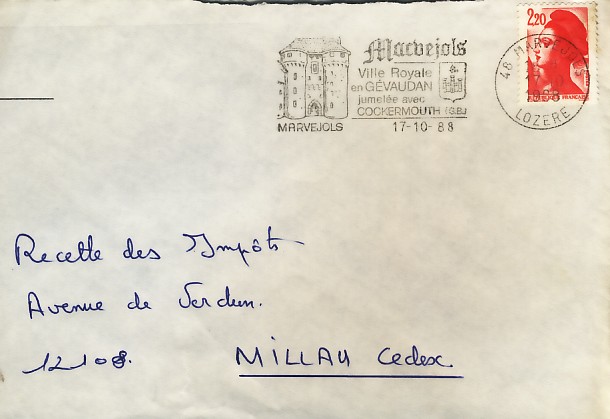 2,20
Marvejols
Ville Royale
en GÉVAUDAN
jumelée avec
COCKERMOUTH (G.B.)
MARVEJOLS
17-10-88
48 MARVEJOLS
1988
LOZERE
Recette des Impôts
Avenue de Verdun.
12108. MILLAU Cedex